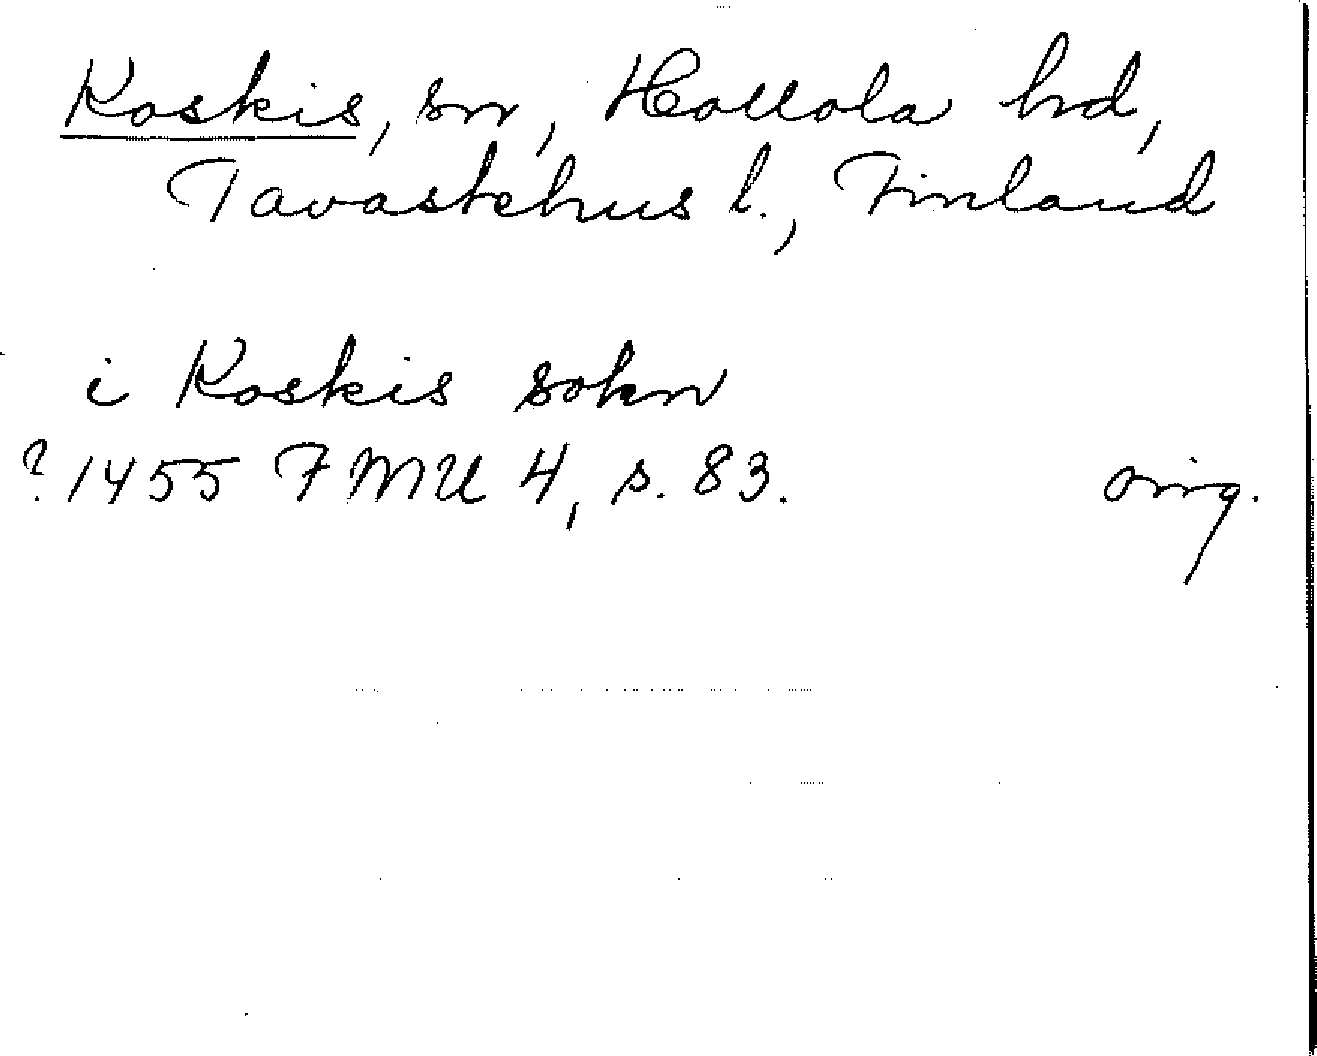 Koskis, sn, Hollola hd,
Tavastehus l., Finland
i Koskis sokn
? 1455 FMU 4, s. 83. orig.